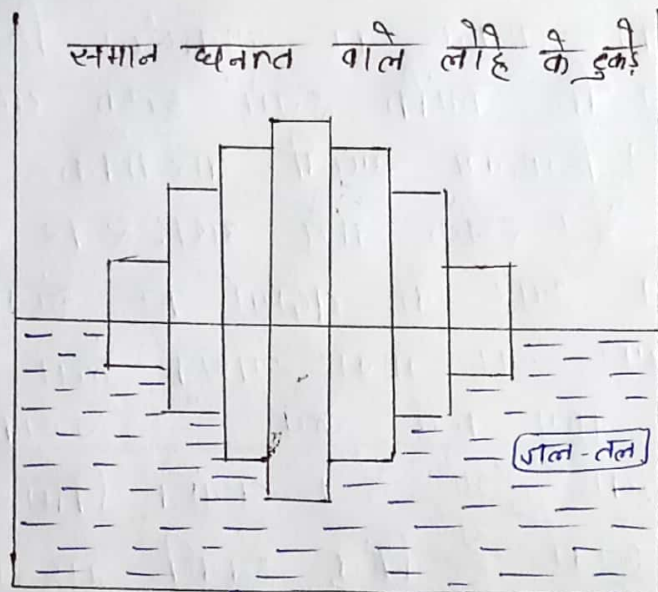 समान घनत्व वाले लोहे के टुकड़े
जल-तल